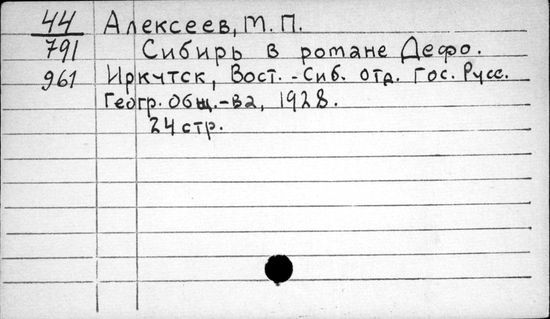 44 Алексеев, М. П.
791 Сибирь в романе Дефо.
961 Иркутск, Вост.-Сиб. отд. Гос. Русс.
Геогр. Общ.-ва, 1928.
24 стр.